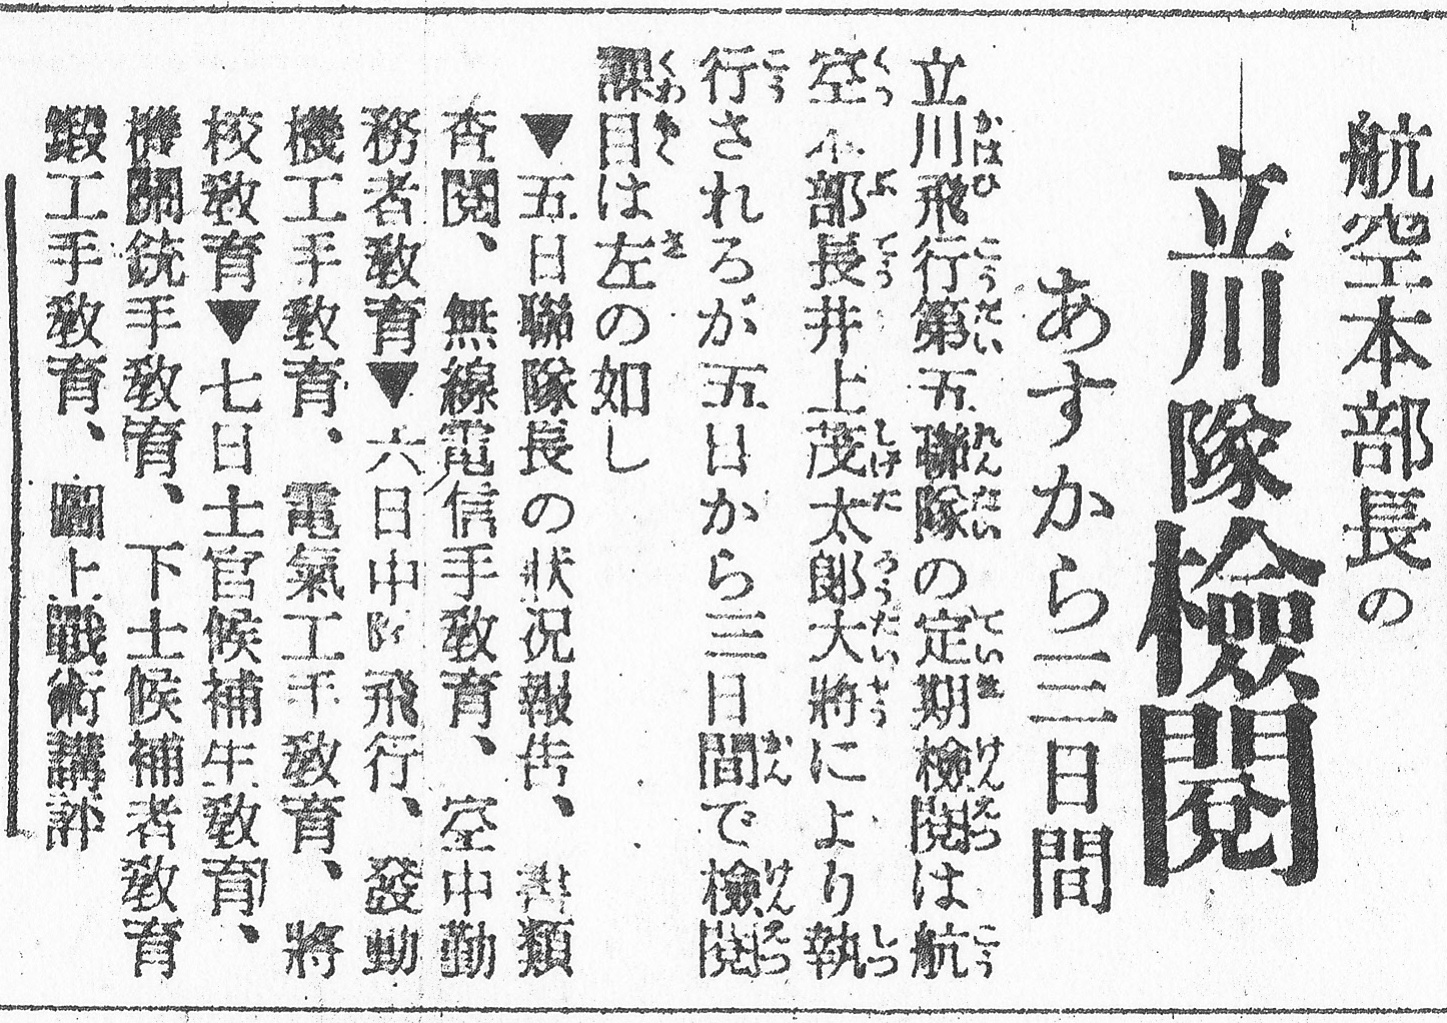 航空本部長の
立川隊檢閱
あすから三日間
立川飛行第五聯隊の定期檢閱は航
空本部長井上茂太郎大將により執
行されろが五日から三日間で檢閱
課目は左の如し
▼五日聯隊長の狀況報告、書類
査閱、無線電信手敎育、空中勤
務者敎育▼六日中隊飛行、發動
機工手敎育、電氣工手敎育、將
校敎育▼七日士官候補生敎育、
機關銃手敎育、下士候補者敎育
鍛工手敎育、圖上戰術講評